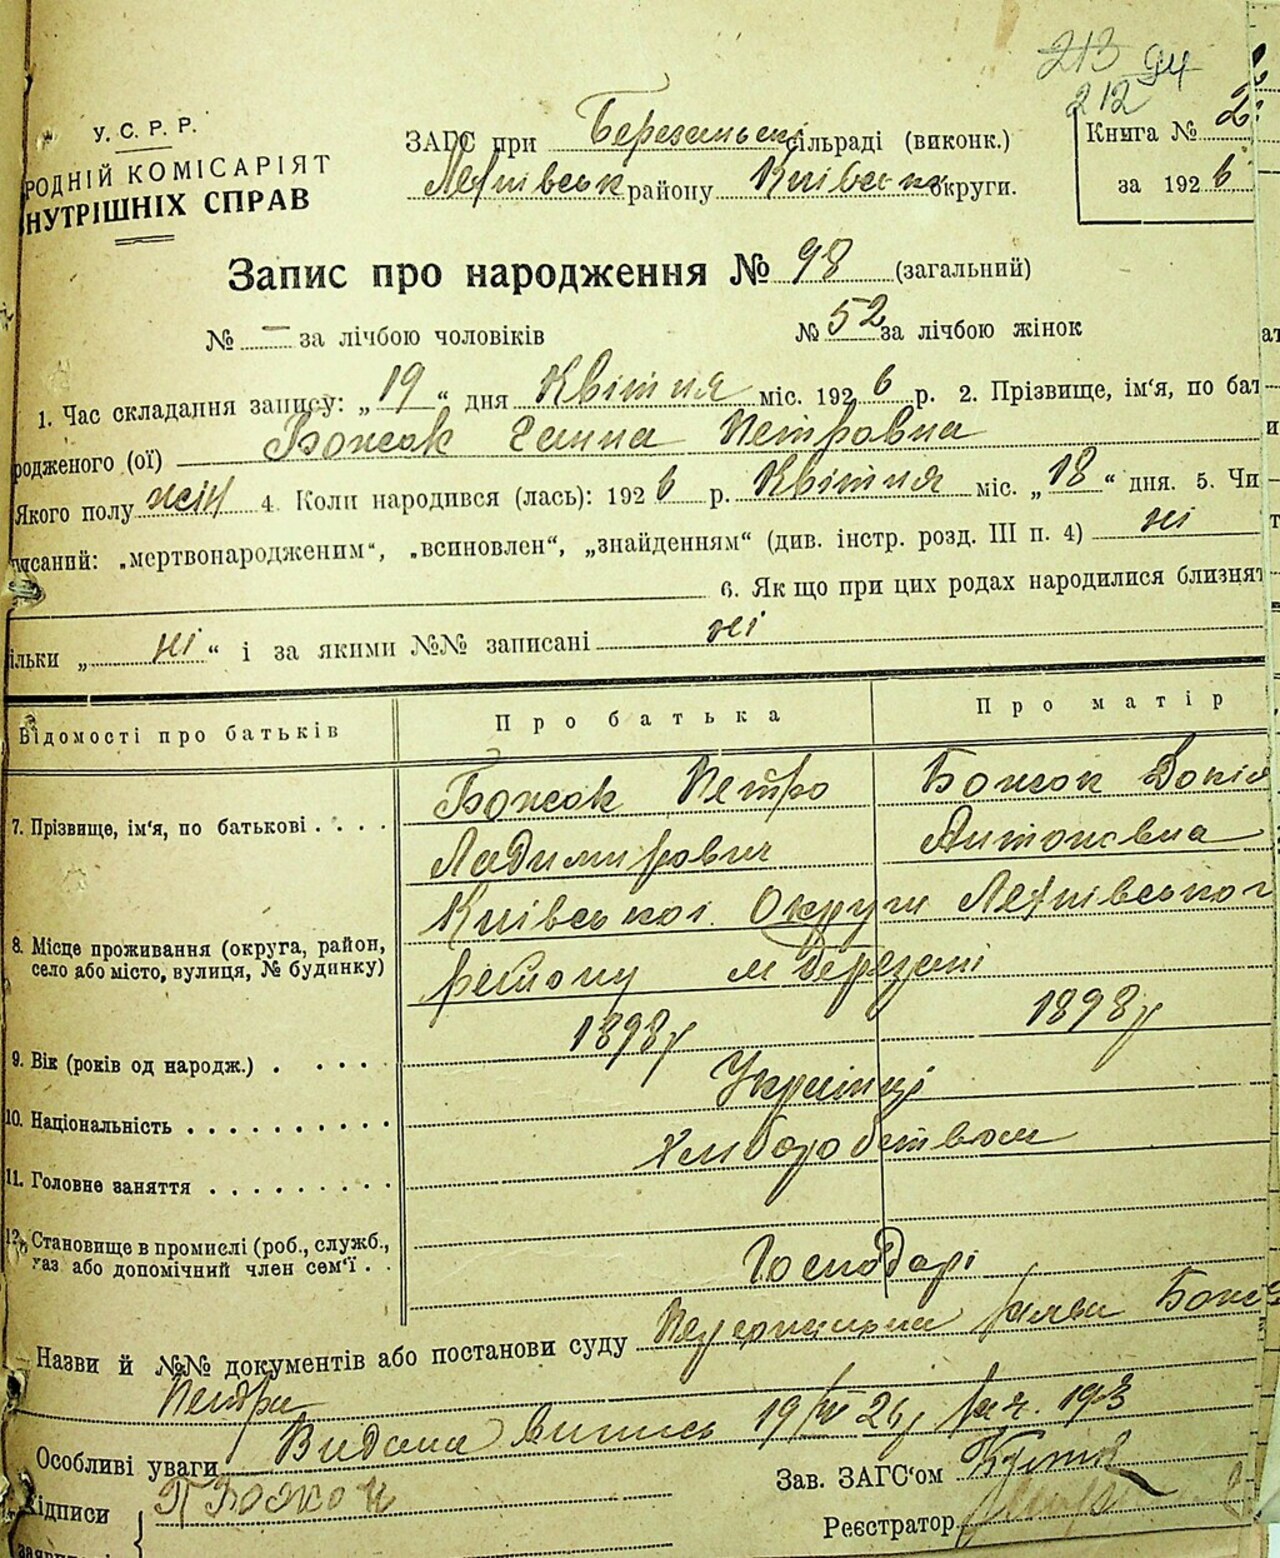 213 94
212
У. С. Р. Р.
РОДНІЙ КОМІСАРІЯТ
НУТРІШНІХ СПРАВ
ЗАГС при Березанський сільраді (виконк.)
району Київськ округи.
Книга № 2
за 1926
Запис про народження № 98 (загальний)
№ — за лічбою чоловіків № 52 за лічбою жінок
1. Час складання запису: „19“ дня Квітня міс. 1926 р. 2. Прізвище, ім'я, по бат
родженого (ої) Божок Ганна Петровна
Якого полу жін 4. Коли народився (лась): 1926 р. Квітня міс. „18“ дня. 5. Чи
писаний: „мертвонародженим“, „всиновлен“, „знайденням“ (див. інстр. розд. III п. 4) ні
6. Як що при цих родах народилися близнят
ільки „ні“ і за якими №№ записані ні
Відомості про батьків Про батька Про матір
7. Прізвище, ім'я, по батькові . . . . Божок Петро Божок Докія
Ладимирович Антоновна
8. Місце проживання (округа, район, село або місто, вулиця, № будинку) Київської Округи
району м Березані
9. Вік (років од народж.) . . . . 1898р 1898р
10. Національність . . . . . . . . . . Українці
11. Головне заняття . . . . . . . . . Хліборобством
12. Становище в промислі (роб., служб.,
газ або допомічний член сем'ї . . Господарі
Назви й №№ документів або постанови суду заява Божка
Петра
Особливі уваги Видана Випись 19/IV 26р
Зав. ЗАГС'ом
Підписи П Божок
Реєстратор
заявителі